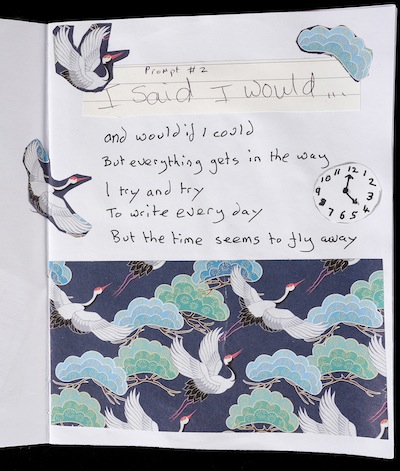 Prompt #2
I said I would...
and would if I could
But everything gets in the way
I try and try
To write every day
But the time seems to fly away
12
11 1
10 2
9 3
8 4
7 6 5